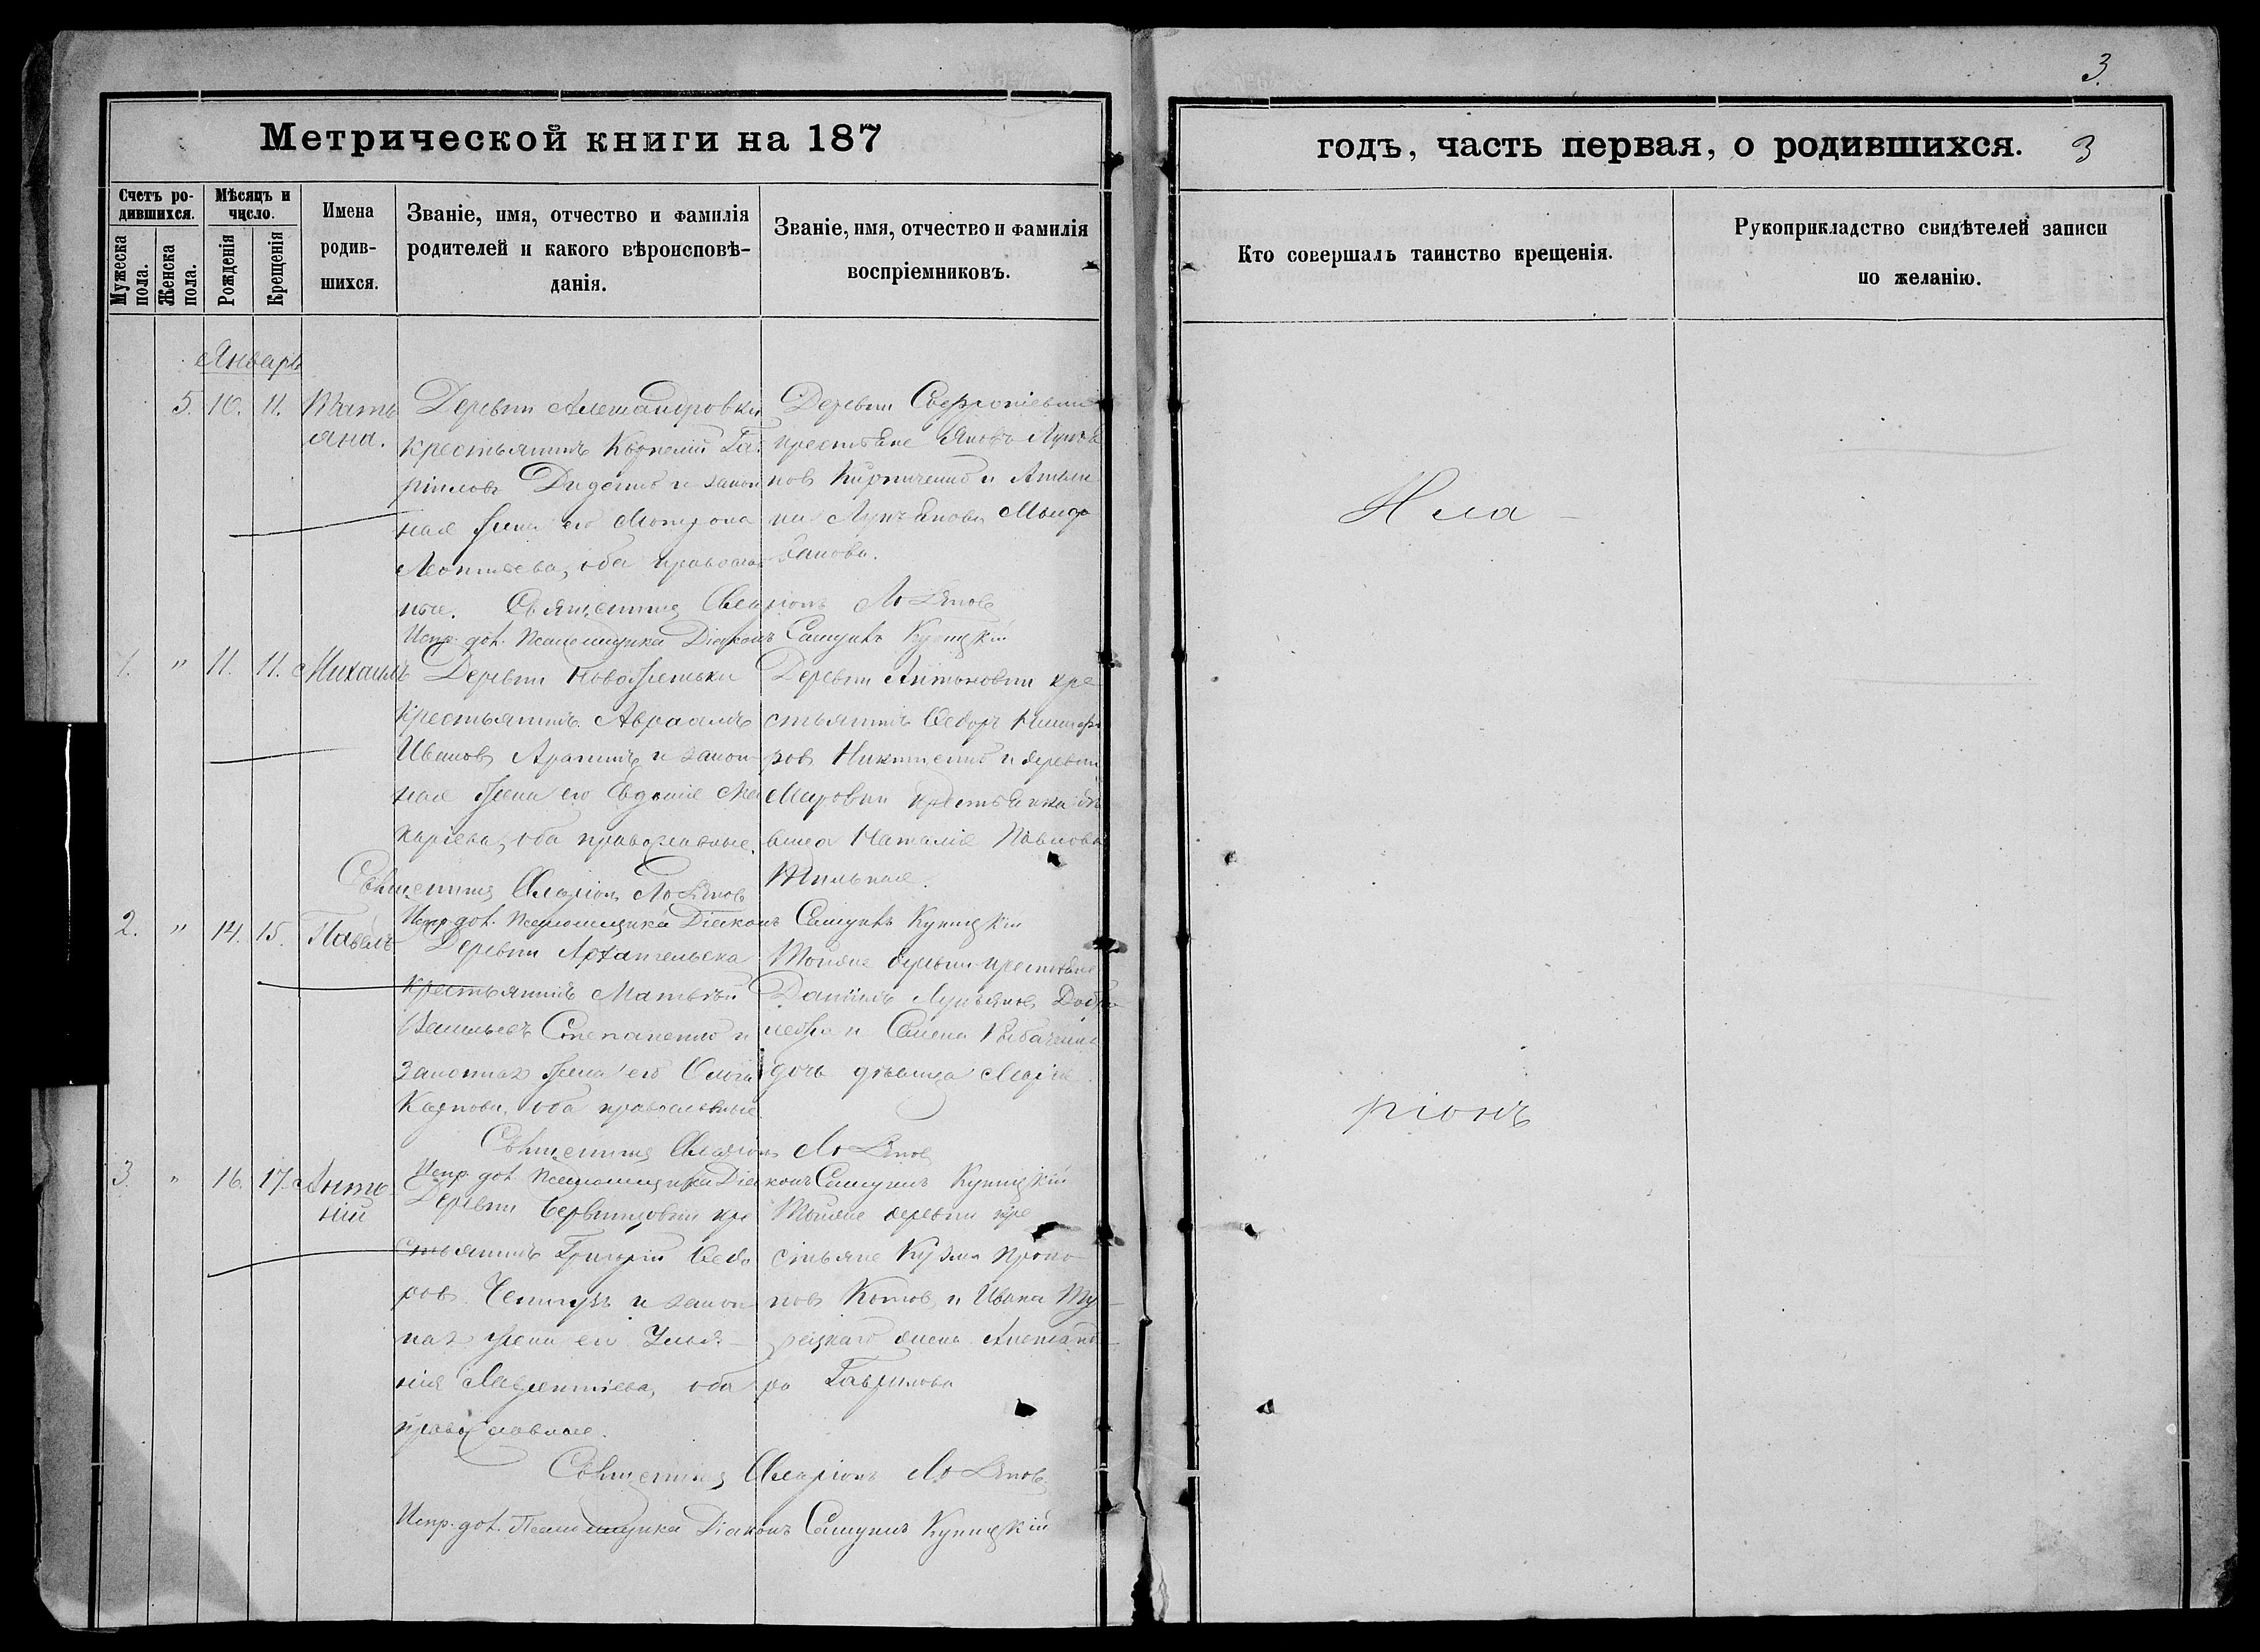 3.
Метрической книги на 187
годъ, часть первая, о родившихся. 3
Счетъ ро-
дившихся.
Мужеска
пола.
Женска
пола.
Мѣсяцъ и
число.
Рожденія
Крещенія
Имена
родив-
шихся.
Званіе, имя, отчество и фамилія
родителей и какого вѣроисповѣ-
данія.
Званіе, имя, отчество и фамилія
воспріемниковъ.
Кто совершалъ таинство крещенія.
Рукоприкладство свидѣтелей записи
по желанію.
Январь
5. 10. 11. Тать
яна.
Деревни Александровки
крестьянинъ Корнилій Гав
ріиловъ Диденко и закон
ная жена его Мотрона
Леонтьева, оба православ
ные.
Деревни
крестьяне Яковъ Лукья
новъ Кирпиченко и
Лукьянова
Священникъ Иларіонъ
Испр. дол. Псаломщика Діаконъ Самуилъ
1. " 11. 11. Михаилъ
Деревни
крестьянинъ Авраамъ
Ивановъ и закон-
ная жена его Евдокія Ма
каріева, оба православные.
Деревни Антоновки кре
стьянинъ Ѳедоръ Никифо
ровъ Никитенко и деревни
крестьянка дѣ
вица Наталія Павлова
Священникъ Иларіонъ
Испр. дол. Псаломщика Діаконъ Самуилъ
2. " 14. 15. Павелъ
Деревни Архангельска
крестьянинъ Матвѣй
Васильевъ Степаненко и
законная жена его Ольга
Карпова, оба православные
Тойже деревни крестьяне
Даніилъ Лукьяновъ
и Семена
дочь дѣвица Марія.
Священникъ Иларіонъ
Испр. дол. Псаломщика Діаконъ Самуилъ
3. " 16. 17. Анто
ній
Деревни кре
стьянинъ Григорій Ѳедо
ровъ и закон
ная жена его Улья-
нія Лаврентіева, оба
православные.
Тойже деревни кре
стьяне Кузма Проко
повъ Котовъ и Ивана Ту-
рецкаго жена Александ-
ра Гаврилова
Священникъ Иларіонъ
Испр. дол. Псаломщика Діаконъ Самуилъ
Ила-
ріонъ